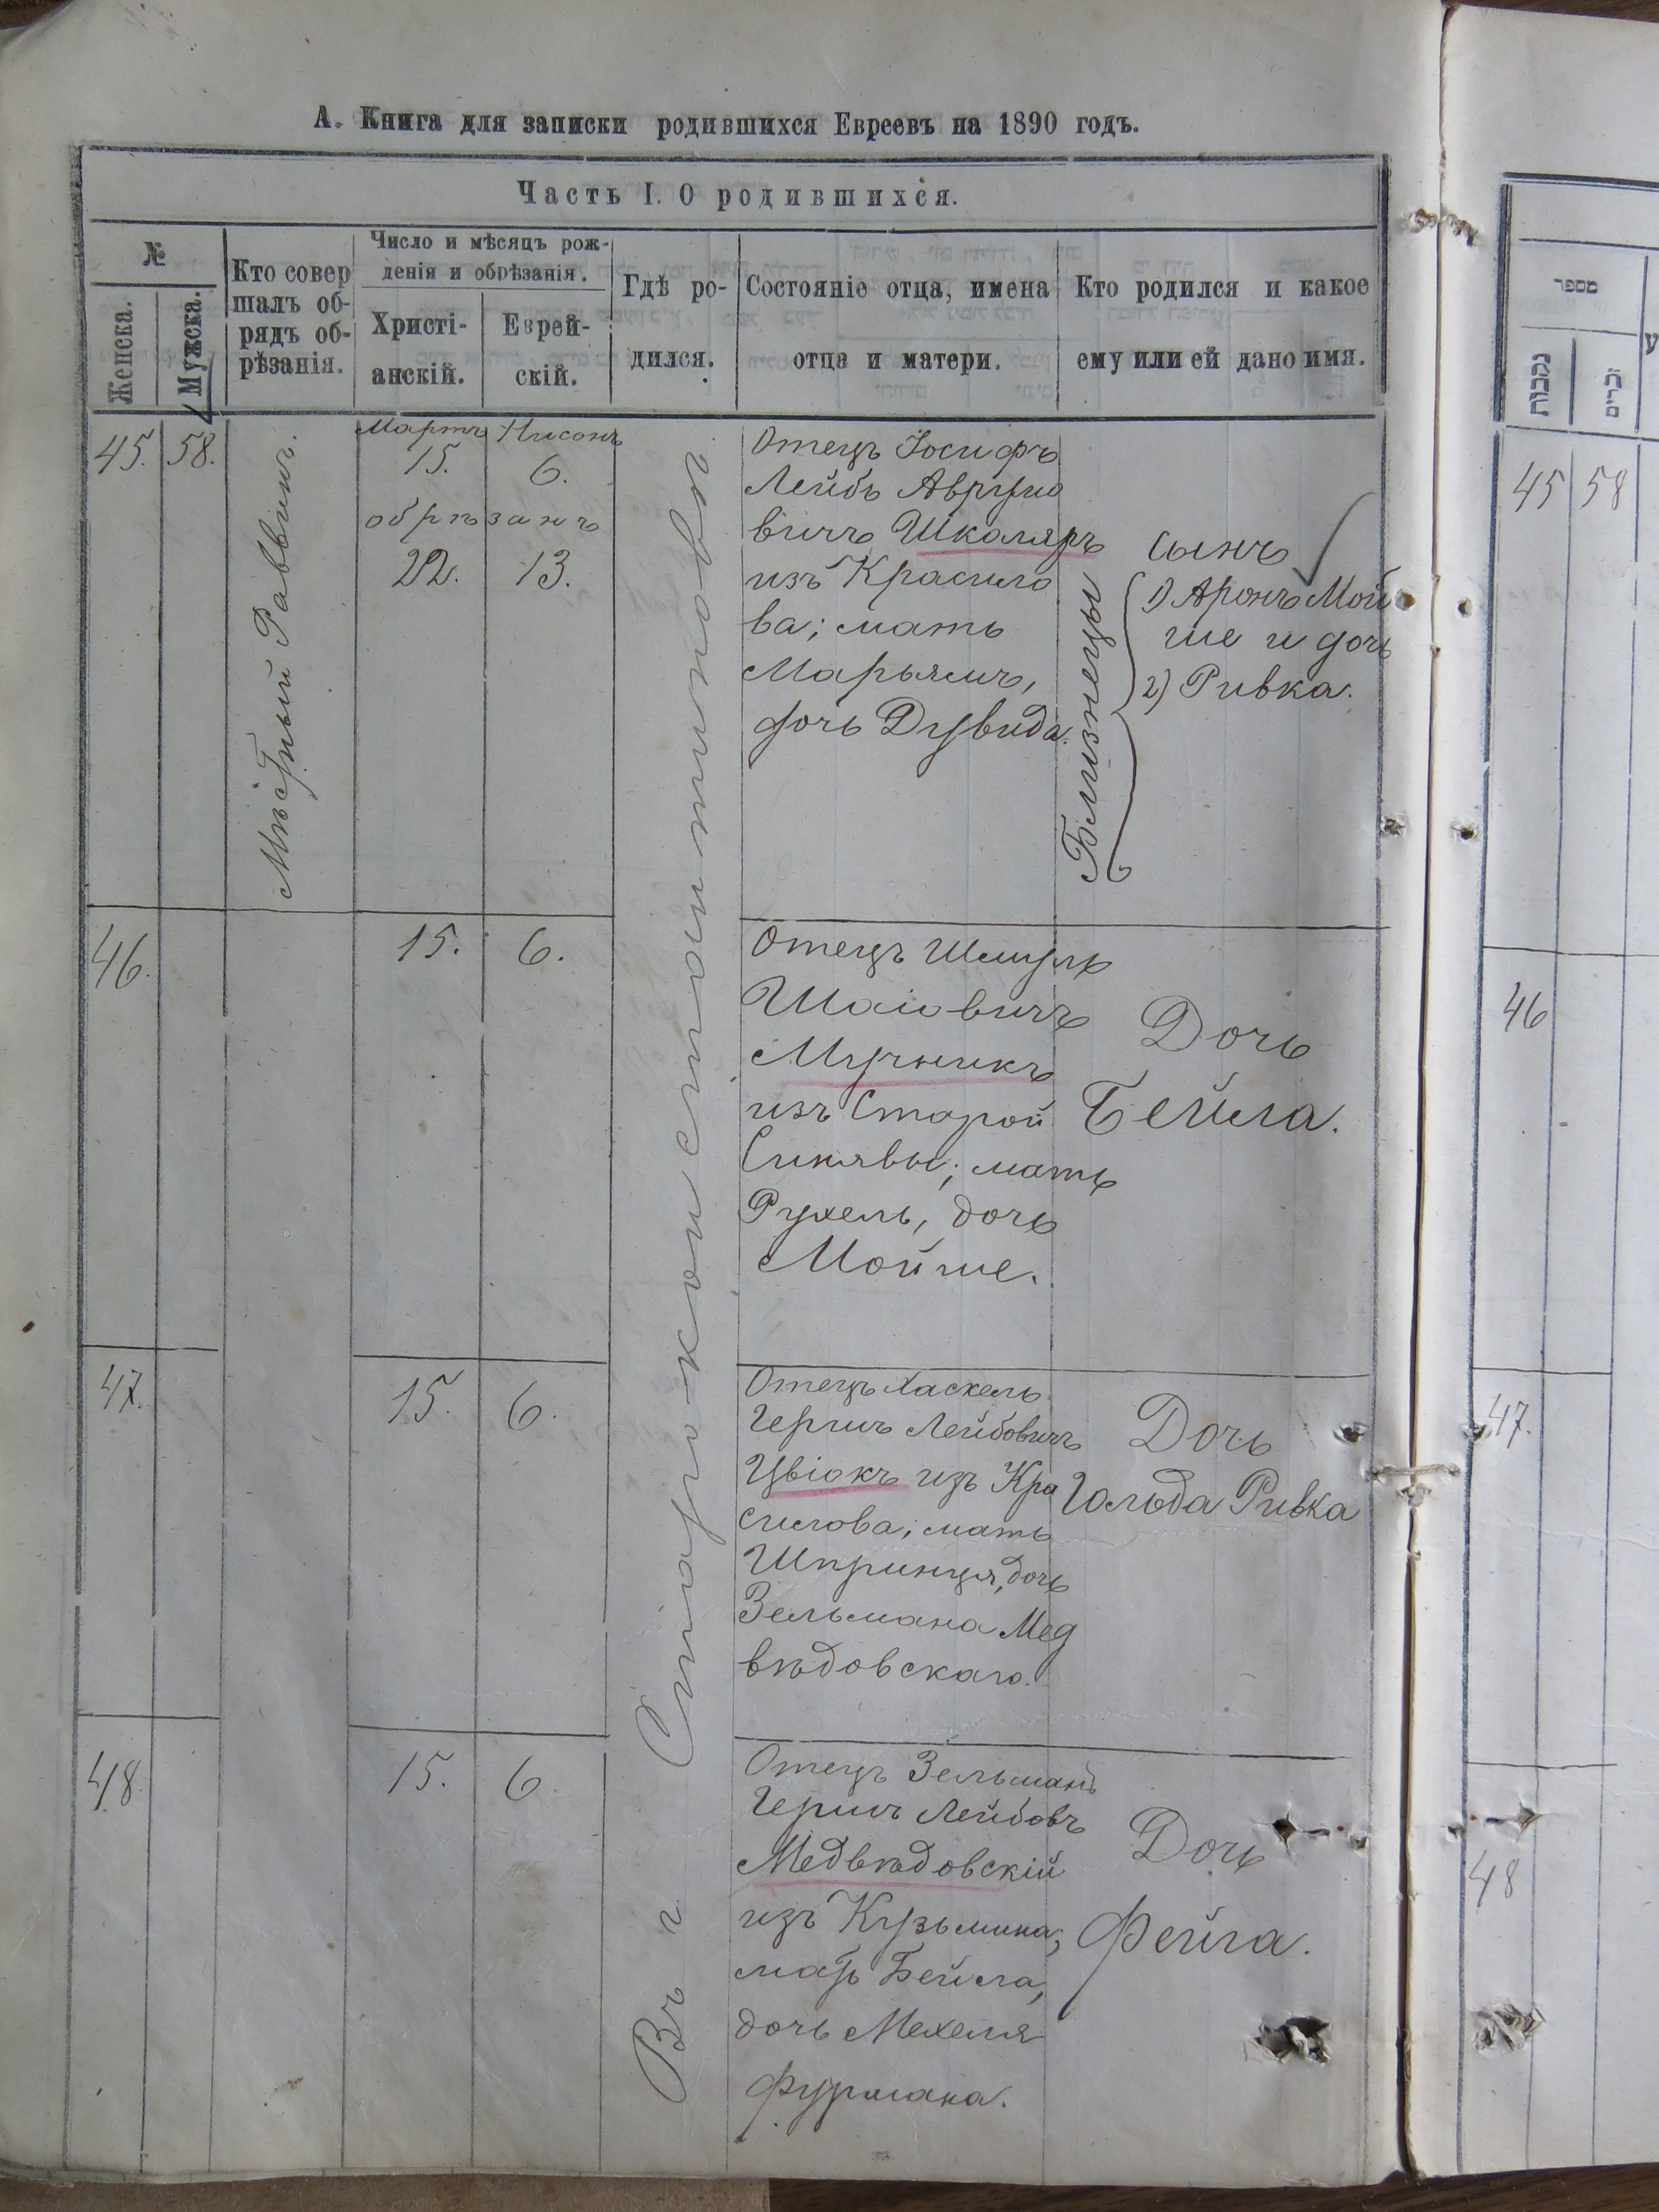 А. Книга для записки родившихся Евреевъ на 1890 годъ.
Часть I. О родившихся.
№
Женска.
Мужска.
Кто совер
шалъ об-
рядъ об-
рѣзанія.
Число и мѣсяцъ рож-
денія и обрѣзанія.
Христі-
анскій.
Еврей-
скій.
Гдѣ ро-
дился.
Состояніе отца, имена
отца и матери.
Кто родился и какое
ему или ей дано имя.
45.
58.
Мѣстный Раввинъ.
Мартъ Нисонъ
15. 6.
обрѣзанъ
22. 13.
Въ г. Старо-константиновѣ
Отецъ Іосифъ
Лейбъ Аврумо
вичъ Шкаляръ
изъ Красило
ва; мать
Марьямъ,
дочь Дувида.
Близнецы
сынъ
1) Аронъ Мой
ше и дочь
2) Ривка.
46.
15. 6.
Отецъ Шмуль
Шаіовичъ
Мучникъ
изъ Старой
Синявы; мать
Рухель, дочь
Мойше.
Дочь
Бейла.
47.
15. 6.
Отецъ Хаскель
Гершъ Лейбовичъ
Цвіокъ изъ Кра
силова; мать
Шпринця, дочь
Зельмана Мед
вѣдовскаго.
Дочь
Гольда Ривка
48.
15. 6
Отецъ Зельманъ
Гершъ Лейбовъ
Медвѣдовскій
изъ Кузьмина;
мать Бейла,
дочь Мехеля
Фурмана.
Дочь
Фейга.
מספר
נקבות
זכרים
45 58
46
47.
48